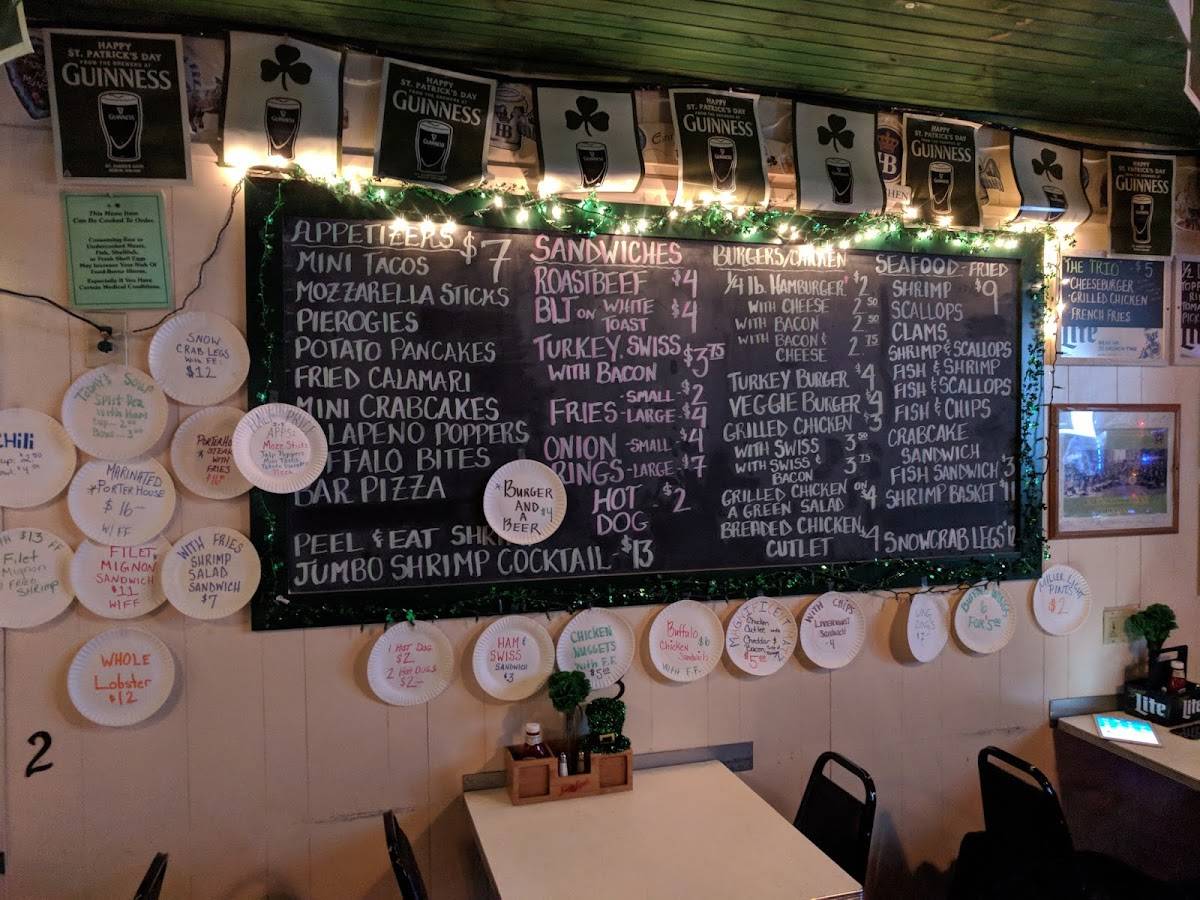 HAPPY
ST. PATRICK'S DAY
FROM THE BREWERS AT
GUINNESS
GUINNESS
HAPPY
ST. PATRICK'S DAY
FROM THE BREWERS AT
GUINNESS
HAPPY
ST. PATRICK'S DAY
GUINNESS
HAPPY
ST. PATRICK'S DAY
GUINNESS
HAPPY
ST. PATRICK'S DAY
GUINNESS
HB
HB
This Menu Item
Can Be Cooked To Order.
Consuming Raw or
Undercooked Meats,
Fish, Shellfish,
or Fresh Shell Eggs
May Increase Your Risk Of
Food-Borne Illness,
Especially If You Have
Certain Medical Conditions.
APPETIZERS $7
MINI TACOS
MOZZARELLA STICKS
PIEROGIES
POTATO PANCAKES
FRIED CALAMARI
MINI CRABCAKES
JALAPENO POPPERS
BUFFALO BITES
BAR PIZZA
PEEL & EAT SHRI
JUMBO SHRIMP COCKTAIL - $13
SANDWICHES
ROASTBEEF $4
BLT ON WHITE TOAST $4
TURKEY, SWISS
WITH BACON $3.75
FRIES - SMALL - $2
LARGE - $4
ONION RINGS - SMALL - $4
- LARGE - $7
HOT DOG - $2
BURGERS/CHICKEN
1/4 lb. HAMBURGER $2
WITH CHEESE 2.50
WITH BACON 2.50
WITH BACON &
CHEESE 2.75
TURKEY BURGER $4
VEGGIE BURGER $4
GRILLED CHICKEN $3
WITH SWISS 3.50
WITH SWISS &
BACON 3.75
GRILLED CHICKEN ON
A GREEN SALAD $4
BREADED CHICKEN
CUTLET $4
SEAFOOD - FRIED
SHRIMP $9
SCALLOPS
CLAMS
SHRIMP & SCALLOPS
FISH & SHRIMP
FISH & SCALLOPS
FISH & CHIPS
CRABCAKE
SANDWICH
FISH SANDWICH $3
SHRIMP BASKET $11
SNOWCRAB LEGS
THE TRIO - $5
CHEESEBURGER
GRILLED CHICKEN
FRENCH FRIES
Lite
SNOW
CRAB LEGS
With FF
$12
TODAY'S SOUP
Split Pea
With Ham
Cup - 2.00
Bowl - 3.00
PORTERHO
STEAK
WITH
FRIES
APPS:
Mozz Sticks
Jalp Poppers
BURGER
AND A
BEER $4
CHILI
MARINATED
*PORTERHOUSE
$16 -
W/FF
$13 FF
Filet
Mignon
Fried
Shrimp
FILET
MIGNON
SANDWICH
$11
W/FF
WITH FRIES
SHRIMP
SALAD
SANDWICH
$7
WHOLE
Lobster
$12
1 HOT DOG
$2
2 HOT DOGS
$2 -
HAM &
SWISS
SANDWICH
$3
CHICKEN
NUGGETS
With F.F.
$5.00
Buffalo $6
Chicken
Sandwich
W/ F.F.
MAGNIFICENT
Chicken
Cutlet with
Cheddar &
Bacon
$5.00
WITH CHIPS
Sandwich
- 4
6
FOR $5.00
MILLER LIGHT
PINTS
$2
2
Lite
Lite